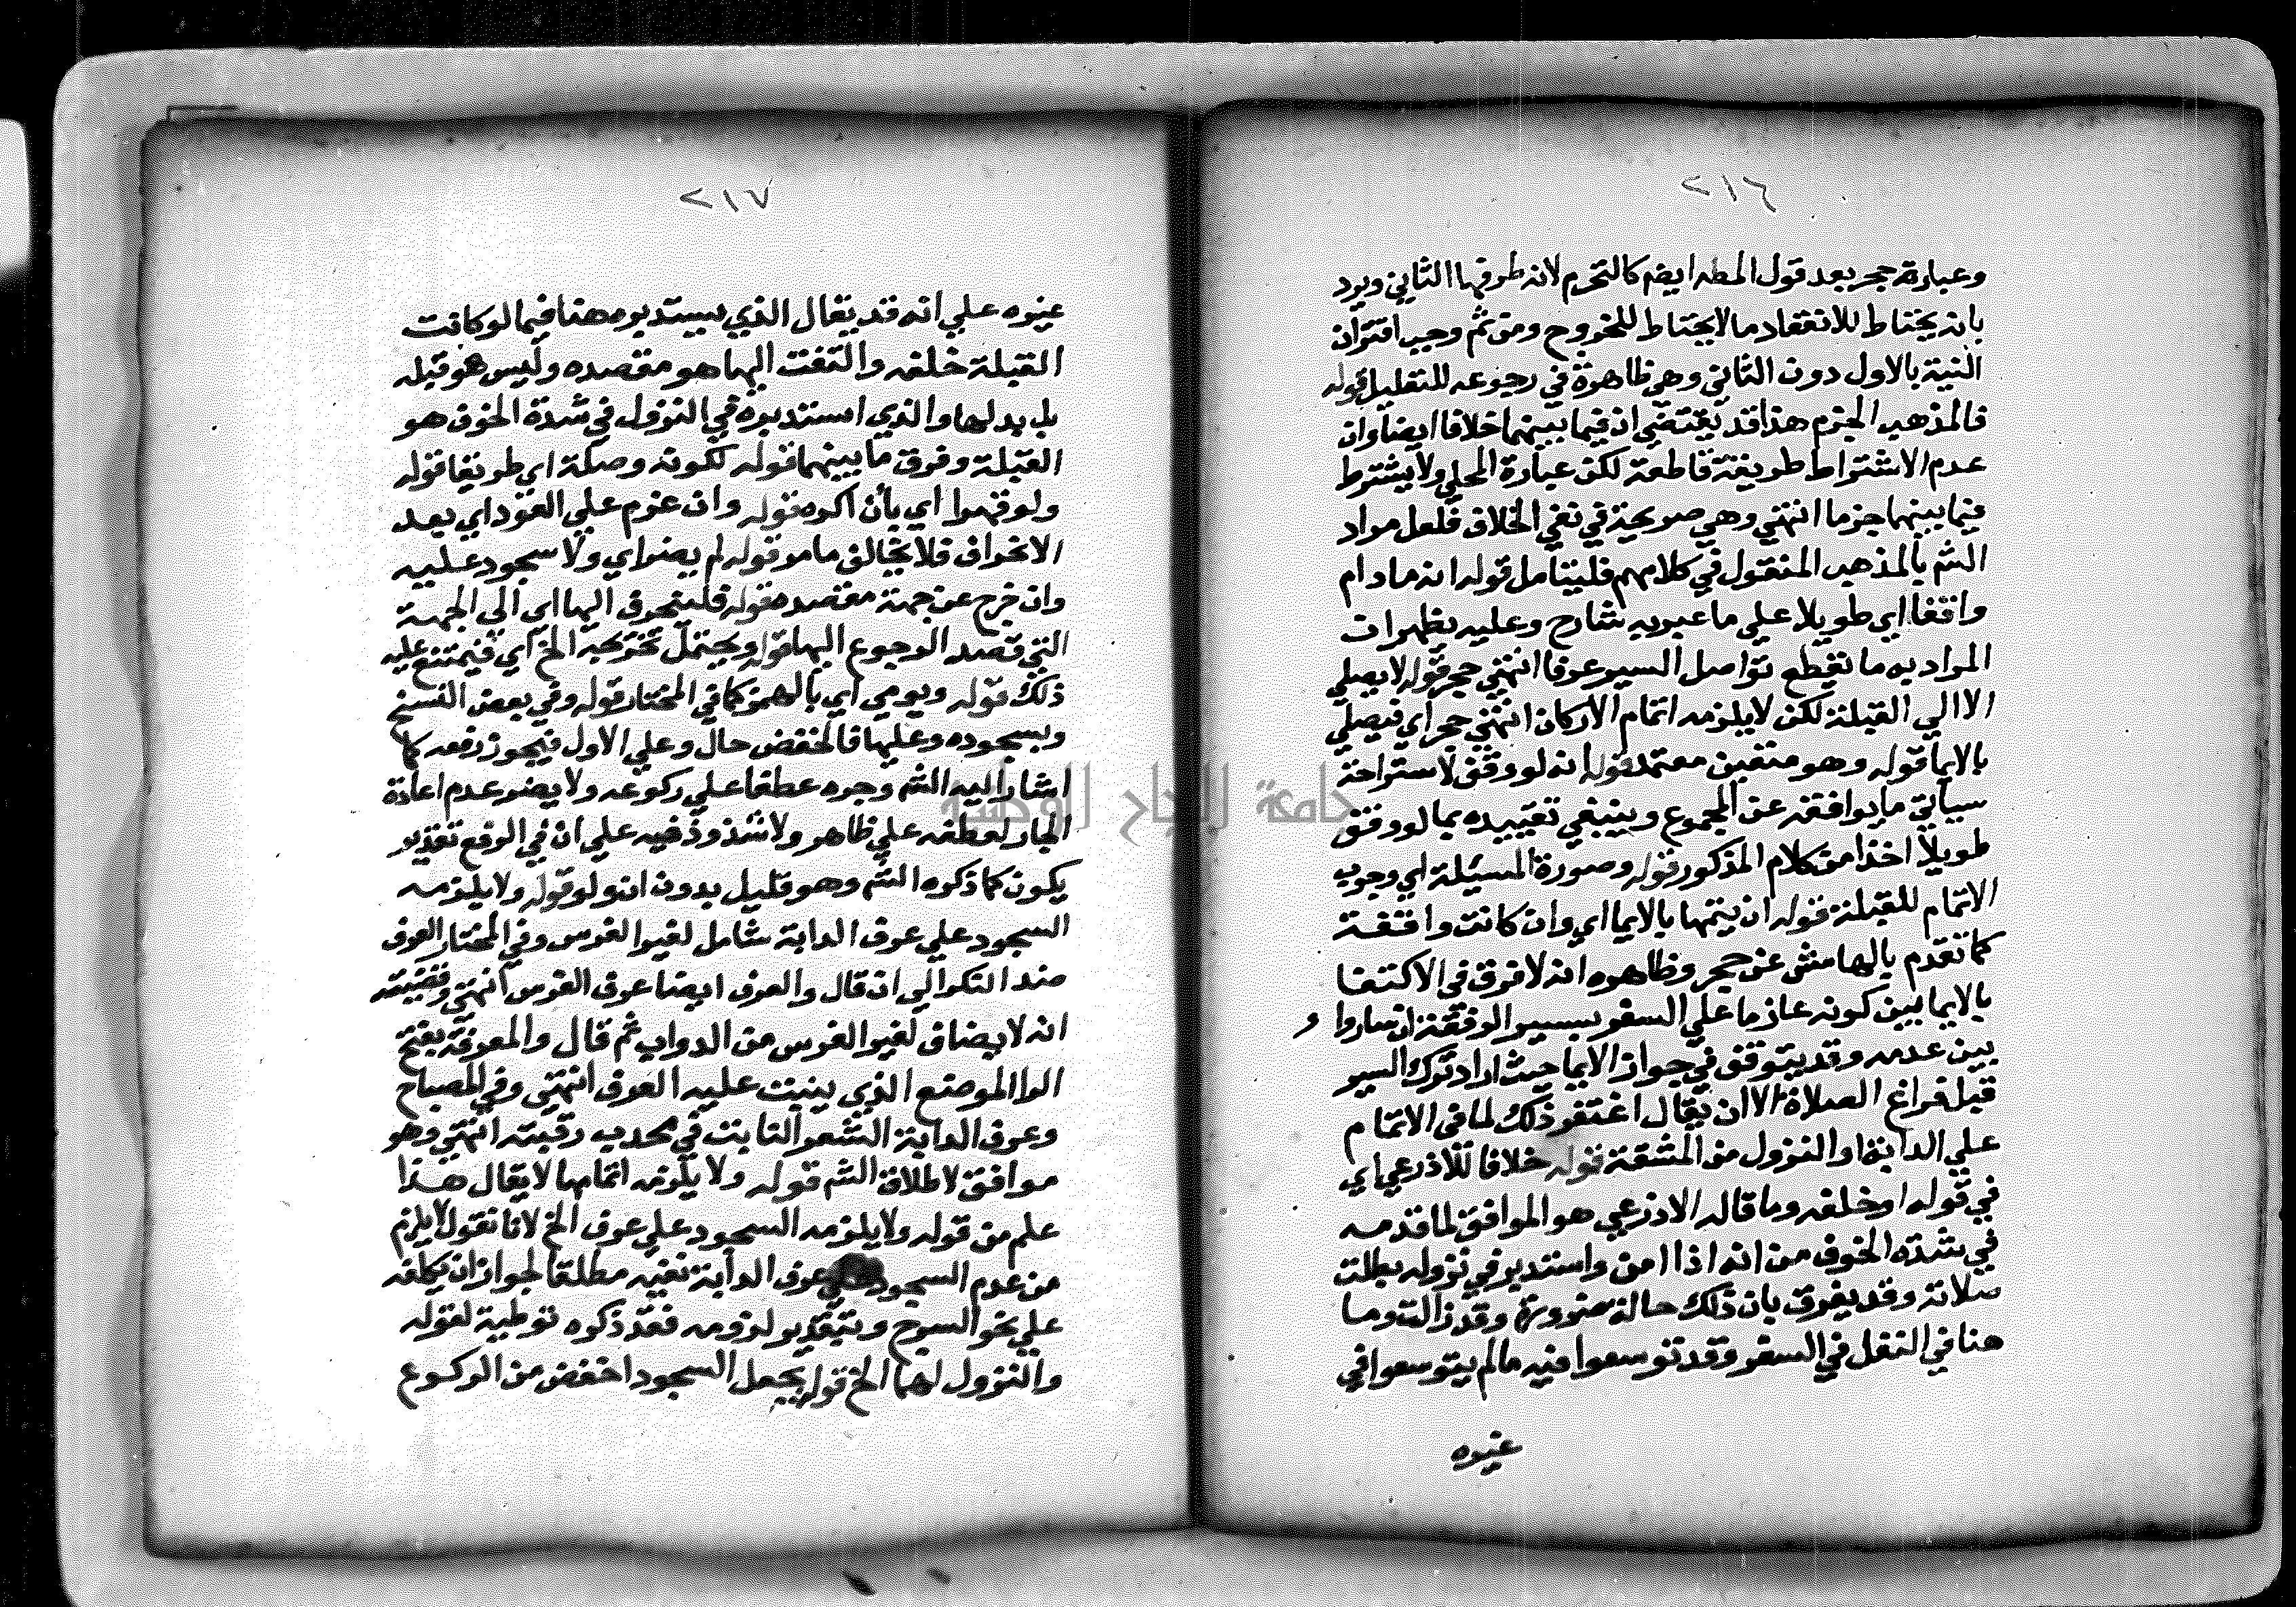 ٢١٦
وعبارة حجر بعد قول المط ايضا كالتحرم لانه طرفها الثاني ويرد
بانه يحتاط للانعقاد ما لا يحتاط للخروج ومن ثم وجب اقتران
النية بالاول دون الثاني وهي ظاهرة في رجوعه للتعليل قوله
فالمذهب الجزم هذا قد يقتضي ان فيما بينهما خلافا ايضا وان
عدم الاشتراط طريقة قاطعة لكن عبارة المحلي ولا يشترط
فيما بينهما جزما انتهي وهي صريحة في نفي الخلاف فلعل مراد
الشم بالمذهب المنقول في كلامهم فليتامل قوله انه ما دام
واقفا اي طويلا علي ما عبر به شارح وعليه يظهر ان
المراد به ما تقطع تواصل السير عرفا انتهي حجر قوله لا يصلي
الا الي القبلة لكن لا يلزمه اتمام الاركان انتهي حجر اي فيصلي
بالايما قوله وهو متعين معتمد قوله انه لو وقف لاستراحة
سياتي ما يوافقه عن المجموع وينبغي تقييده بما لو وقف
طويلا اخذا من كلام المذكور قوله وصورة المسئلة اي وجوب
الاتمام للقبلة قوله ان يتمها بالايما اي وان كانت واقفة
كما تقدم بالهامش عن حجر وظاهره انه لا فرق في الاكتفا
بالايما بين كونه عازما علي السفر بسير الرفقة ان ساروا و
بين عدمه وقد يتوقف في جواز الايما حيث اراد ترك السير
قبل فراغ الصلاة الا ان يقال اغتفر ذلك لما في الاتمام
علي الدابة او النزول من المشقة قوله خلافا للاذرعي اي
في قوله او خلفه وما قاله الاذرعي هو الموافق لما قدمه
في شدة الخوف من انه اذا امن واستدبر في نزوله بطلت
صلاته وقد يفرق بان ذلك حالة ضرورة وقد زالت وما
هنا في النفل في السفر وقد توسعوا فيه ما لم يتوسعوا في
غيره
٢١٧
غيره علي انه قد يقال الذي يستدبره هنا فيما لو كانت
القبلة خلفه والتفت اليها هو مقصده وليس هو قبله
بل بدلها والذي استدبره في النزول في شدة الخوف هو
القبلة وفرق ما بينهما قوله لكونه وصلة اي طريقا قوله
ولو قهرا اي بأن اكره قوله وان عزم علي العود اي بعد
الانحراف فلا يخالف ما مر قوله لم يضر اي ولا سجود عليه
وان خرج عن جهة مقصده قوله فليتحرف اليها اي الي الجهة
التي قصد الرجوع اليها قوله ويحتمل تخرجه الخ اي فيمتنع عليه
ذلك قوله ويومي اي بالهمز كما في المختار قوله وفي بعض النسخ
وبسجوده وعليها فاخفض حال وعلي الاول فيجوز رفعه كما
اشار اليه الشم وجره عطفا علي ركوعه ولا يضر عدم اعادة
الجار لعطفه علي ظاهر ولا شذوذ فيه علي ان في الرفع تقدير
يكون كما ذكره الشم وهو قليل بدون ان ولو قوله ولا يلزمه
السجود علي عرف الدابة شامل لغير الفرس وفي المختار العرف
ضد النكر الي ان قال والعرف ايضا عرف الفرس انتهي وقضيته
انه لا يضاف لغير الفرس من الدواب ثم قال والمعرفة بفتح
الرا الموضع الذي ينبت عليه العرف انتهي وفي المصباح
وعرف الدابة الشعر النابت في محدب رقبته انتهي وهو
موافق لاطلاق الشم قوله ولا يلزمه اتمامها لا يقال هذا
علم من قوله ولا يلزمه السجود علي عرف الخ لانا نقول لا يلزم
من عدم السجود علي عرف الدابة نفيه مطلقا لجواز ان يكلفه
علي نحو السرج وبتقدير لزومه فقد ذكره توطية لقوله
والنزول لهما الخ قوله بجعل السجود اخفض من الركوع
جامعة النجاح الوطنية